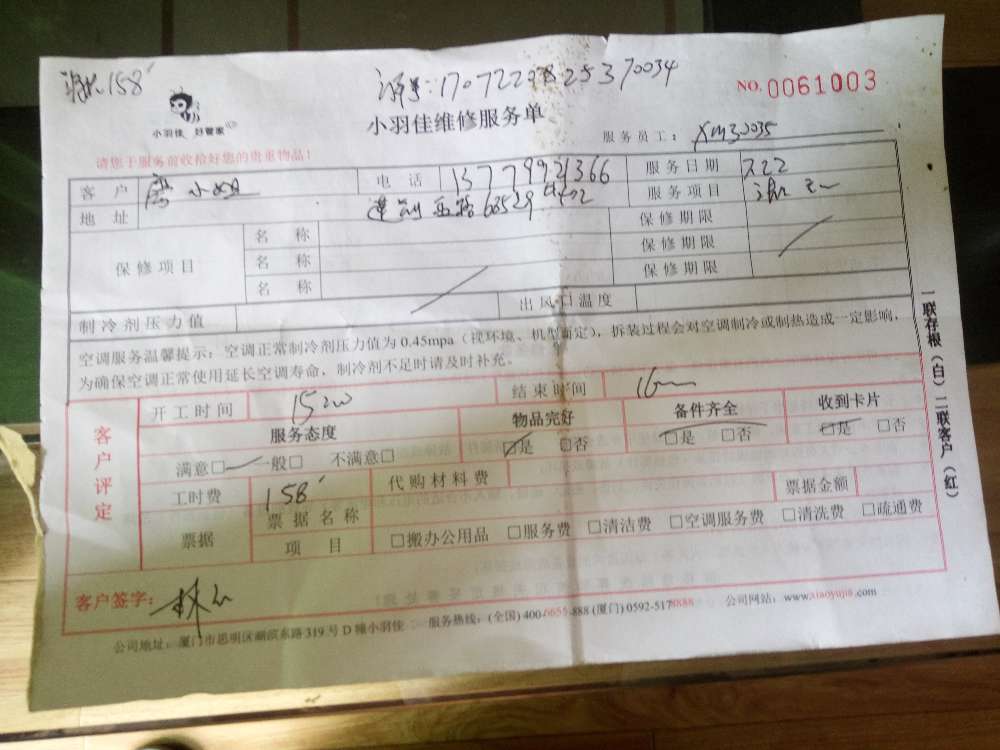 158
单号:170722
NO. 0061003
小羽佳 好管家
小羽佳维修服务单
服务员工: XM30035
请您于服务前收拾好您的贵重物品!
客 户 小姐 电 话 13779921366 服务日期 7.22
地 址 莲前西路 服务项目
保修项目 名 称 保修期限
名 称 保修期限
名 称 保修期限
制冷剂压力值 出风口温度
空调服务温馨提示:空调正常制冷剂压力值为 0.45mpa(视环境、机型而定),拆装过程会对空调制冷或制热造成一定影响,
为确保空调正常使用延长空调寿命,制冷剂不足时请及时补充。
客户评定
开工时间 1500 结束时间 16
服务态度 物品完好 备件齐全 收到卡片
满意□ 一般□ 不满意□ □是 □否 □是 □否 □是 □否
工时费 158 代购材料费
票据 票据名称 票据金额
项 目 □搬办公用品 □服务费 □清洁费 □空调服务费 □清洗费 □疏通费
客户签字: 林
公司地址:厦门市思明区湖滨东路 319 号 D 幢小羽佳 服务热线:(全国) 400-6655-888 (厦门) 0592-5170888 公司网站:www.xiaoyujia.com
一联存根(白)二联客户(红)